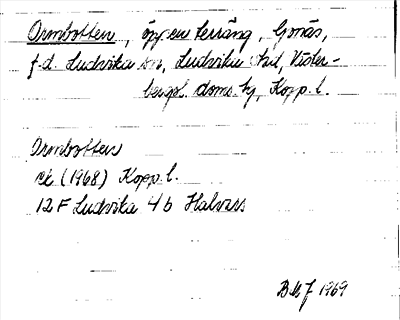 Ormbotten, öppen terräng, Gonäs,
f.d. Ludvika sn, Ludvika stad, Väster-
bergsl. doms.hg, Kopp. l.
Ormbotten
ek (1968) Kopp. l.
12 F Ludvika 4 b Halvars
1969